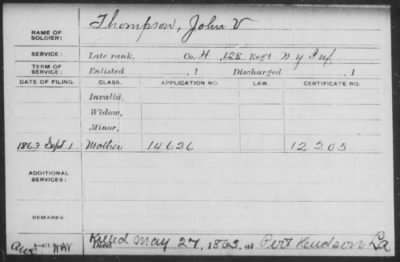 NAME OF SOLDIER: Thompson, John V
SERVICE: Late rank, Co. H, 128 Reg't N Y Inf.
TERM OF SERVICE: Enlisted , 1 Discharged , 1
DATE OF FILING. CLASS. APPLICATION NO. LAW. CERTIFICATE NO.
Invalid,
Widow,
Minor,
1863 Sept. 1 Mother 14626 12203
ADDITIONAL SERVICES:
REMARKS:
Killed May 27, 1863, at Port Hudson La
Died